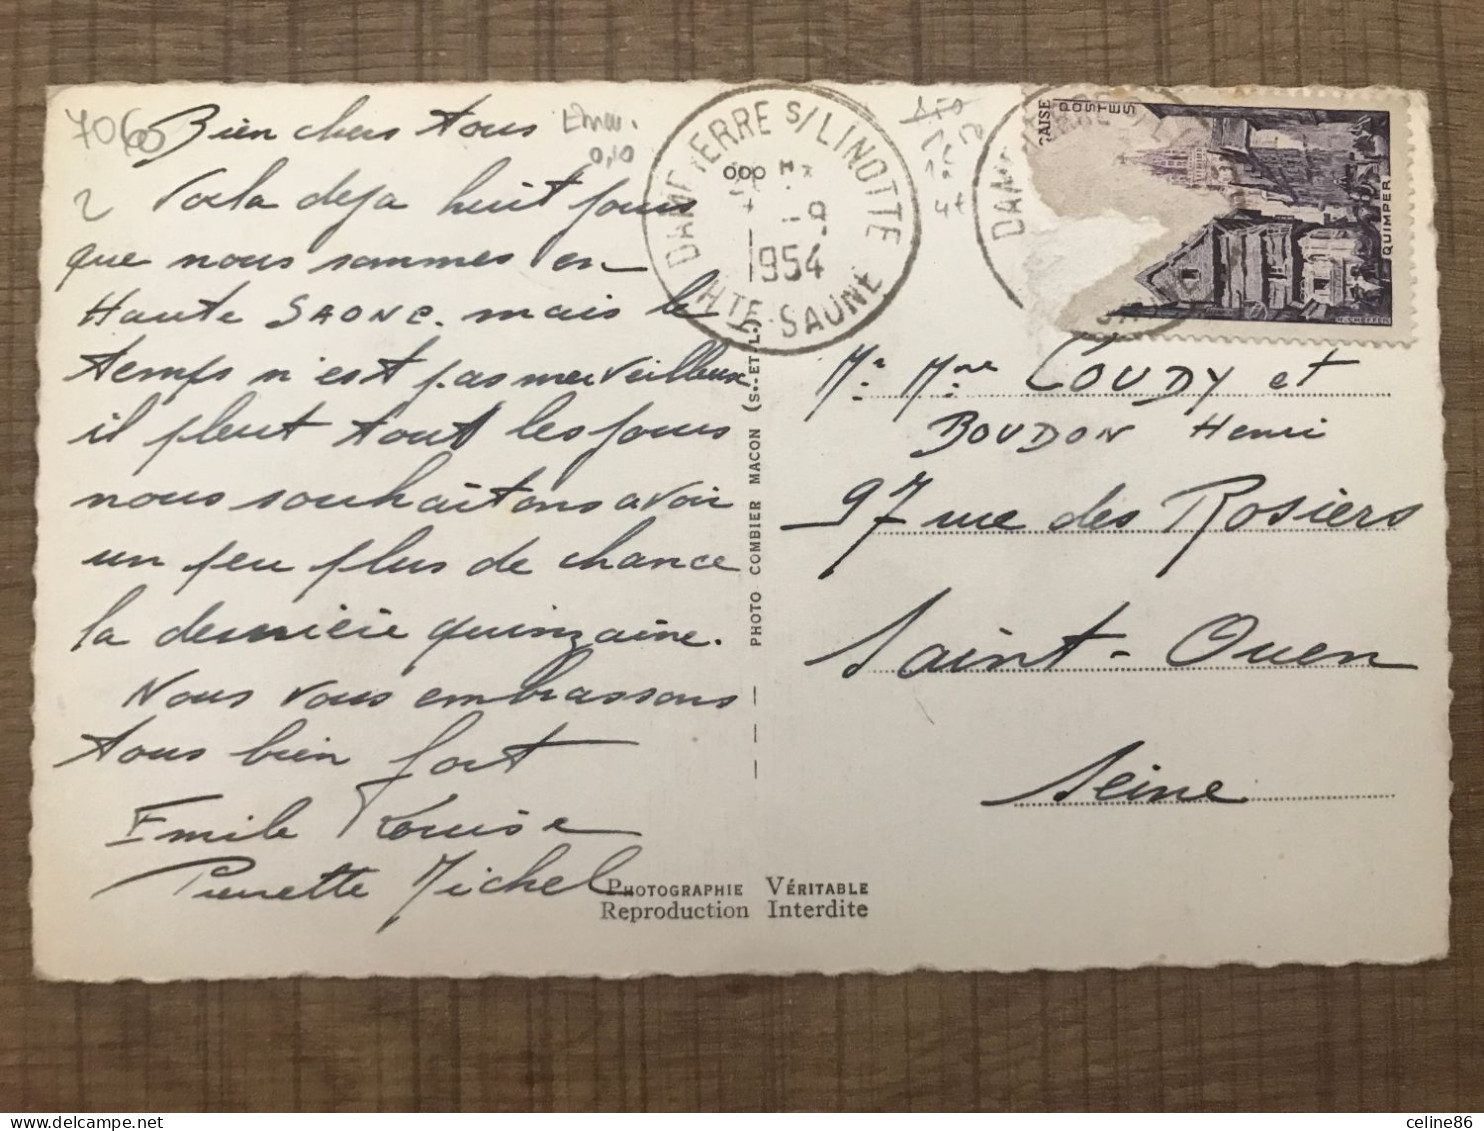 7060
Bien chers tous
Voila deja huit jours
que nous sommes en
Haute SAONE. mais le
temps n'est pas merveilleux
il pleut tout les jours
nous souhaitons avoir
un peu plus de chance
la dernière quinzaine.
Nous vous embrassons
tous bien fort
Emile Louise
Pierrette Michel
0,10
DAMPIERRE S/LINOTTE
1954
HTE-SAÔNE
POSTES
QUIMPER
PHOTO COMBIER MACON (S.-ET-L.)
Mr Mme COUDY et
BOUDON Henri
97 rue des Rosiers
Saint-Ouen
Seine
PHOTOGRAPHIE VÉRITABLE
Reproduction Interdite
celine86